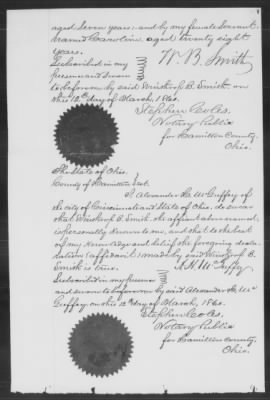 aged seven years; and by my female servant
named Caroline aged twenty eight
years.
W. B. Smith
Subscribed in my
presence and sworn
to before me by said Winthrop B. Smith on
this 12th day of March, 1860.
Stephen Coles,
Notary Public
for Hamilton County,
Ohio.
The State of Ohio,
County of Hamilton,
I, Alexander H. McGuffey of
the city of Cincinnati and State of Ohio, do swear
that Winthrop B. Smith the affiant above named,
is personally known to me, and that to the best
of my knowledge and belief the foregoing
affidavit made by said Winthrop B.
Smith is true.
A. H. McGuffey
Subscribed in my presence
and sworn to before me by said Alexander H. Mc
Guffey on this 12th day of March, 1860.
Stephen Coles
Notary Public
for Hamilton County,
Ohio.